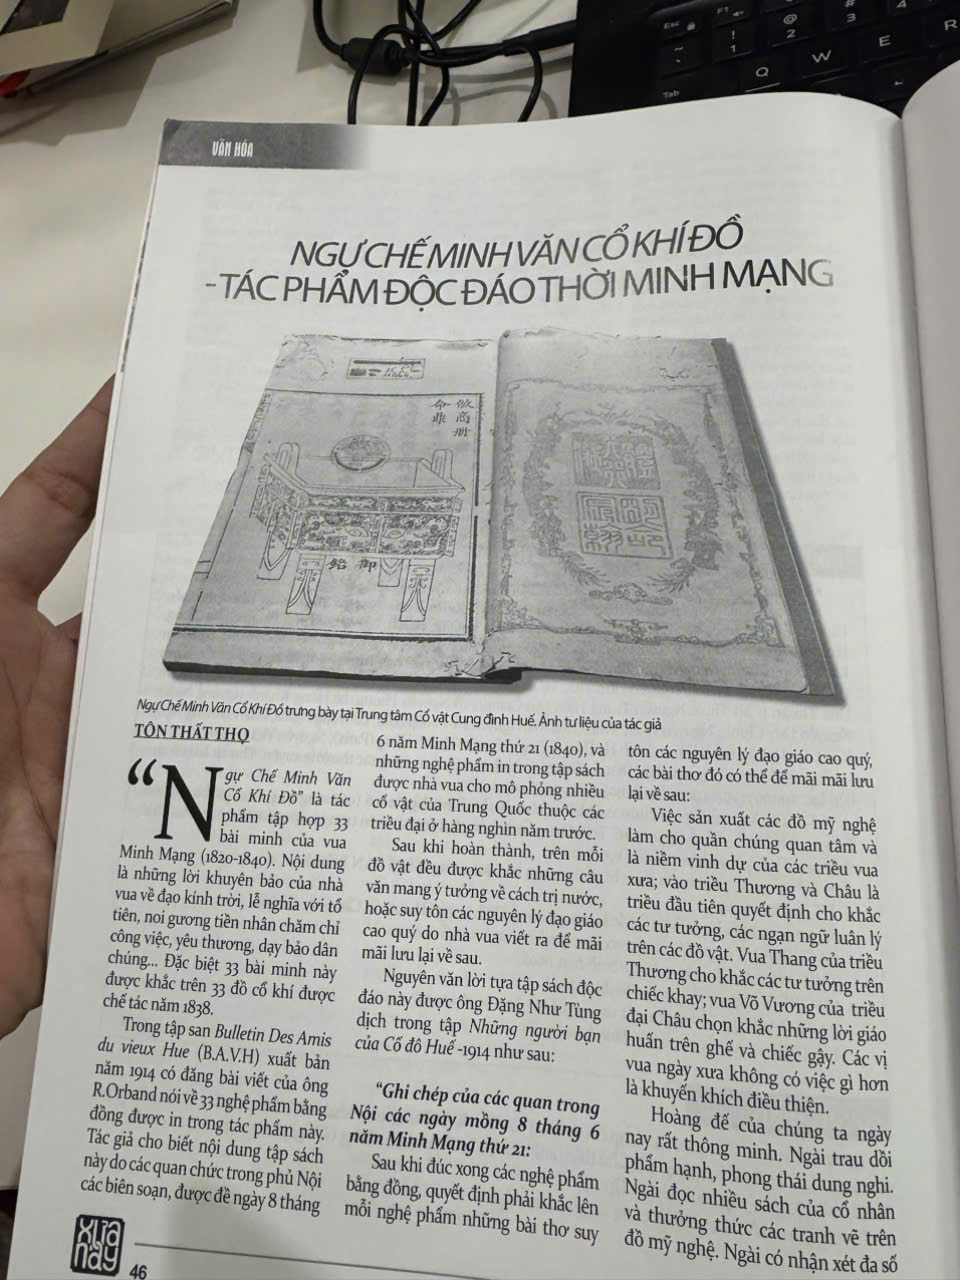 VĂN HÓA
NGỰ CHẾ MINH VĂN CỔ KHÍ ĐỒ
- TÁC PHẨM ĐỘC ĐÁO THỜI MINH MẠNG
Ngự Chế Minh Văn Cổ Khí Đồ trưng bày tại Trung tâm Cổ vật Cung đình Huế. Ảnh tư liệu của tác giả
TÔN THẤT THỌ
“Ngự Chế Minh Văn
Cổ Khí Đồ” là tác
phẩm tập hợp 33
bài minh của vua
Minh Mạng (1820-1840). Nội dung
là những lời khuyên bảo của nhà
vua về đạo kính trời, lễ nghĩa với tổ
tiên, noi gương tiền nhân chăm chỉ
công việc, yêu thương, dạy bảo dân
chúng... Đặc biệt 33 bài minh này
được khắc trên 33 đồ cổ khí được
chế tác năm 1838.
Trong tập san Bulletin Des Amis
du vieux Hue (B.A.V.H) xuất bản
năm 1914 có đăng bài viết của ông
R.Orband nói về 33 nghệ phẩm bằng
đồng được in trong tác phẩm này.
Tác giả cho biết nội dung tập sách
này do các quan chức trong phủ Nội
các biên soạn, được đề ngày 8 tháng
6 năm Minh Mạng thứ 21 (1840), và
những nghệ phẩm in trong tập sách
được nhà vua cho mô phỏng nhiều
cổ vật của Trung Quốc thuộc các
triều đại ở hàng nghìn năm trước.
Sau khi hoàn thành, trên mỗi
đồ vật đều được khắc những câu
văn mang ý tưởng về cách trị nước,
hoặc suy tôn các nguyên lý đạo giáo
cao quý do nhà vua viết ra để mãi
mãi lưu lại về sau.
Nguyên văn lời tựa tập sách độc
đáo này được ông Đặng Như Tùng
dịch trong tập Những người bạn
của Cố đô Huế -1914 như sau:
“Ghi chép của các quan trong
Nội các ngày mồng 8 tháng 6
năm Minh Mạng thứ 21:
Sau khi đúc xong các nghệ phẩm
bằng đồng, quyết định phải khắc lên
mỗi nghệ phẩm những bài thơ suy
tôn các nguyên lý đạo giáo cao quý,
các bài thơ đó có thể để mãi mãi lưu
lại về sau:
Việc sản xuất các đồ mỹ nghệ
làm cho quần chúng quan tâm và
là niềm vinh dự của các triều vua
xưa; vào triều Thương và Châu là
triều đầu tiên quyết định cho khắc
các tư tưởng, các ngạn ngữ luân lý
trên các đồ vật. Vua Thang của triều
Thương cho khắc các tư tưởng trên
chiếc khay; vua Võ Vương của triều
đại Châu chọn khắc những lời giáo
huấn trên ghế và chiếc gậy. Các vị
vua ngày xưa không có việc gì hơn
là khuyến khích điều thiện.
Hoàng đế của chúng ta ngày
nay rất thông minh. Ngài trau dồi
phẩm hạnh, phong thái dung nghi.
Ngài đọc nhiều sách của cổ nhân
và thưởng thức các tranh vẽ trên
đồ mỹ nghệ. Ngài có nhận xét đa số
XƯA
NAY
46